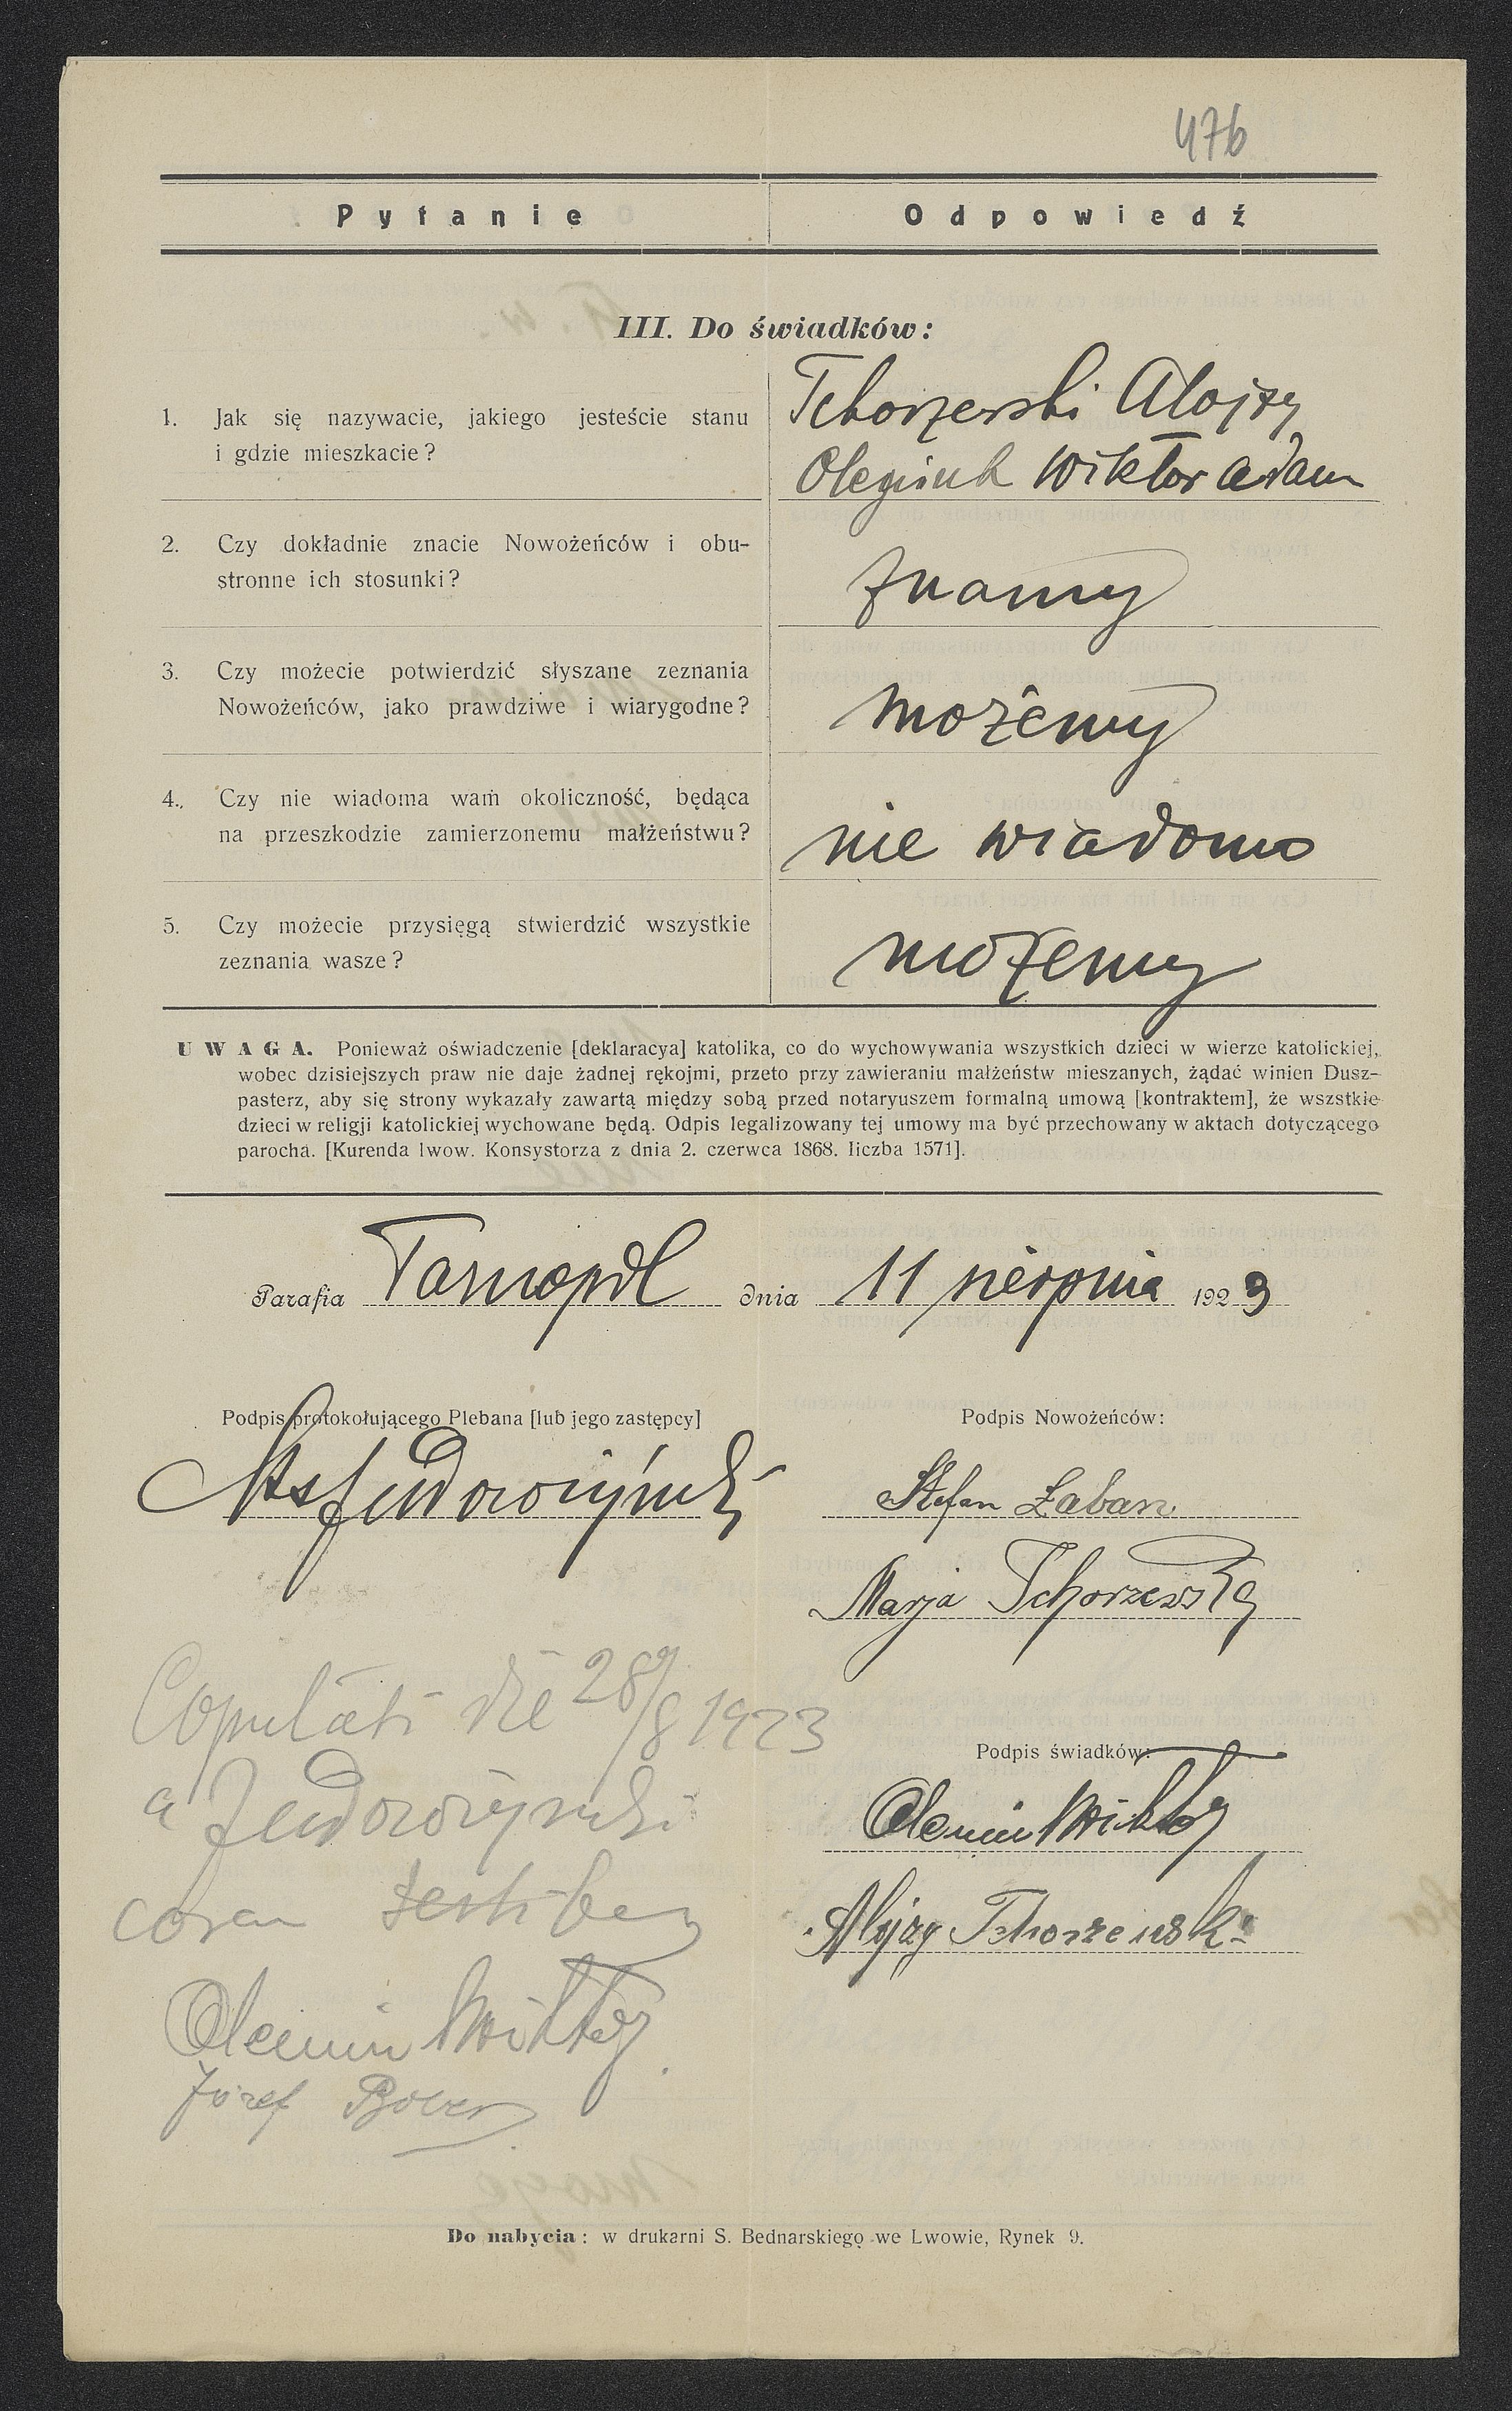 476
Pytanie Odpowiedź
III. Do świadków:
1. Jak się nazywacie, jakiego jesteście stanu
i gdzie mieszkacie?
Tchorzewski Alojzy
Wiktor Adam
2. Czy dokładnie znacie Nowożeńców i obu-
stronne ich stosunki?
znamy
3. Czy możecie potwierdzić słyszane zeznania
Nowożeńców, jako prawdziwe i wiarygodne?
możemy
4. Czy nie wiadoma wam okoliczność, będąca
na przeszkodzie zamierzonemu małżeństwu?
nie wiadomo
5. Czy możecie przysięgą stwierdzić wszystkie
zeznania wasze?
możemy
UWAGA. Ponieważ oświadczenie [deklaracya] katolika, co do wychowywania wszystkich dzieci w wierze katolickiej,
wobec dzisiejszych praw nie daje żadnej rękojmi, przeto przy zawieraniu małżeństw mieszanych, żądać winien Dusz-
pasterz, aby się strony wykazały zawartą między sobą przed notaryuszem formalną umową [kontraktem], że wszstkie
dzieci w religji katolickiej wychowane będą. Odpis legalizowany tej umowy ma być przechowany w aktach dotyczącego
parocha. [Kurenda lwow. Konsystorza z dnia 2. czerwca 1868. liczba 1571].
Parafia Tarnopol dnia 11 sierpnia 1923
Podpis protokołującego Plebana [lub jego zastępcy]
Podpis Nowożeńców:
Stefan Łaban
Marja Tchorzewska
Copulati die 28/8 1923
a
coram testibus
Wiktor
Józef
Podpis świadków:
Wiktor
Alojzy Tchorzewski
Do nabycia: w drukarni S. Bednarskiego we Lwowie, Rynek 9.